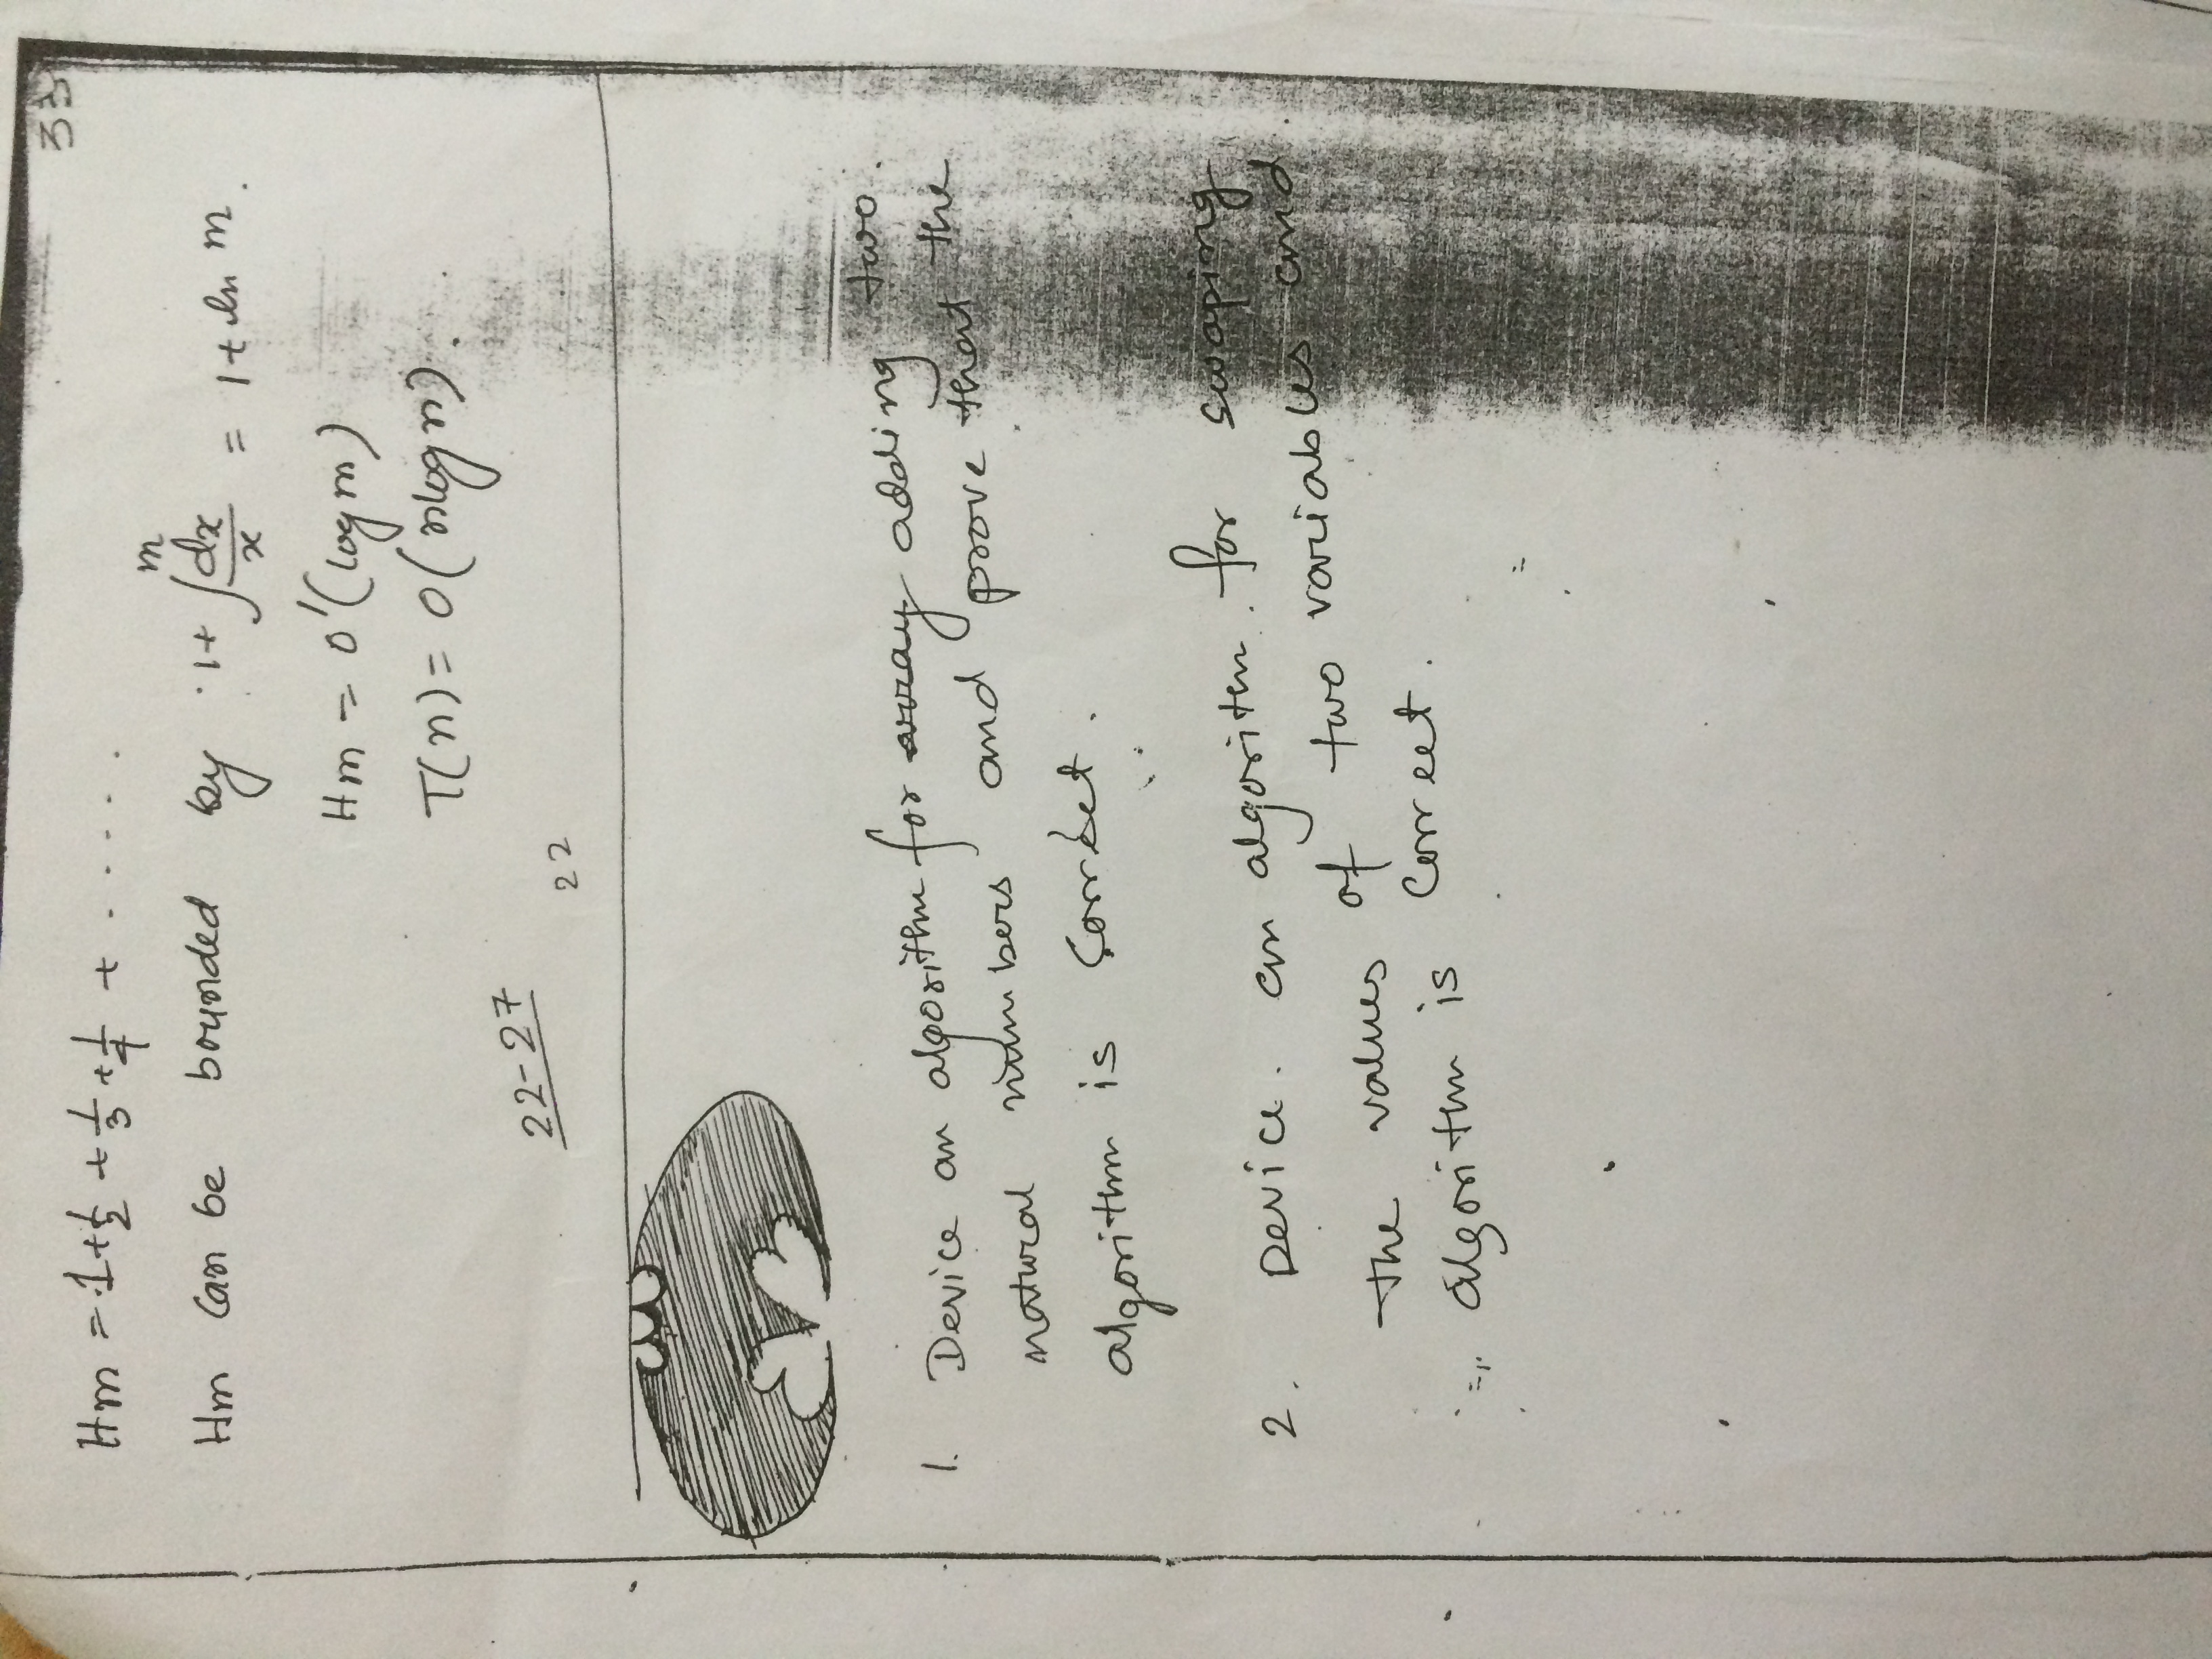 33
Hm = 1 + 1/2 + 1/3 + 1/4 + . . . . .
Hm can be bounded by 1 + ∫ᵐ dx/x = 1 + ln m.
Hm = O'(log m)
T(n) = O(nlogn).
22-27
22
1. Device an algorithm for array adding two
natural numbers and prove that the
algorithm is correct.
2. Device. an algoritm. for swaping
the values of two variables and
algorithm is correct.